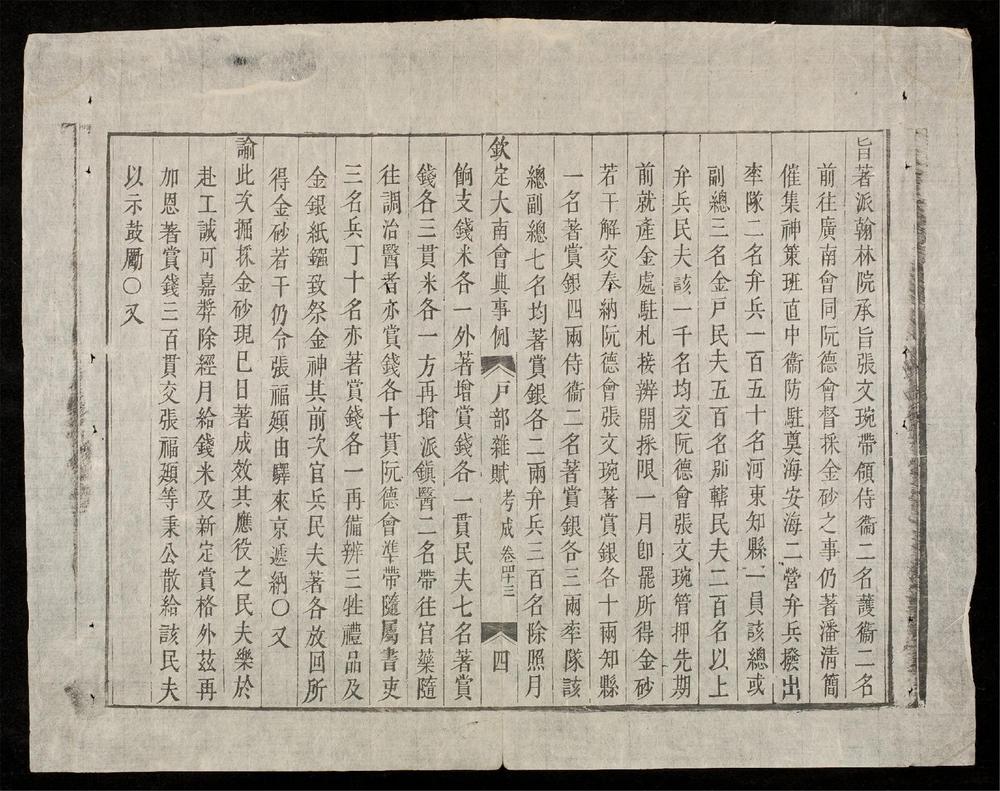 旨著派翰林院承旨張文琬帶領侍衞二名護衞二名
前往廣南會同阮德會督採金砂之事仍著潘清簡
催集神策班直中衞防駐奠海安海二營弁兵撥出
率隊二名弁兵一百五十名河東知縣一員該總或
副總三名金戸民夫五百名別轄民夫二百名以上
弁兵民夫該一千名均交阮德會張文琬管押先期
前就產金處駐札接辨開採限一月卽罷所得金砂
若干解交奉納阮德會張文琬著賞銀各十兩知縣
一名著賞銀四兩侍衞二名著賞銀各三兩率隊該
總副總七名均著賞銀各二兩弁兵三百名除照月
欽定大南會典事例 戸部雜賦 考成 卷四十三 四
餉支錢米各一外著增賞錢各一貫民夫七名著賞
錢各三貫米各一方再增派鎮醫二名帶往官藥隨
往調治醫者亦賞錢各十貫阮德會準帶隨屬書吏
三名兵丁十名亦著賞錢各一再備辨三牲禮品及
金銀紙鏹致祭金神其前次官兵民夫著各放回所
得金砂若干仍令張福𩔗由驛來京遞納〇又
諭此次掘採金砂現已日著成效其應役之民夫樂於
赴工誠可嘉弉除經月給錢米及新定賞格外茲再
加恩著賞錢三百貫交張福𩔗等秉公散給該民夫
以示鼓厲〇又